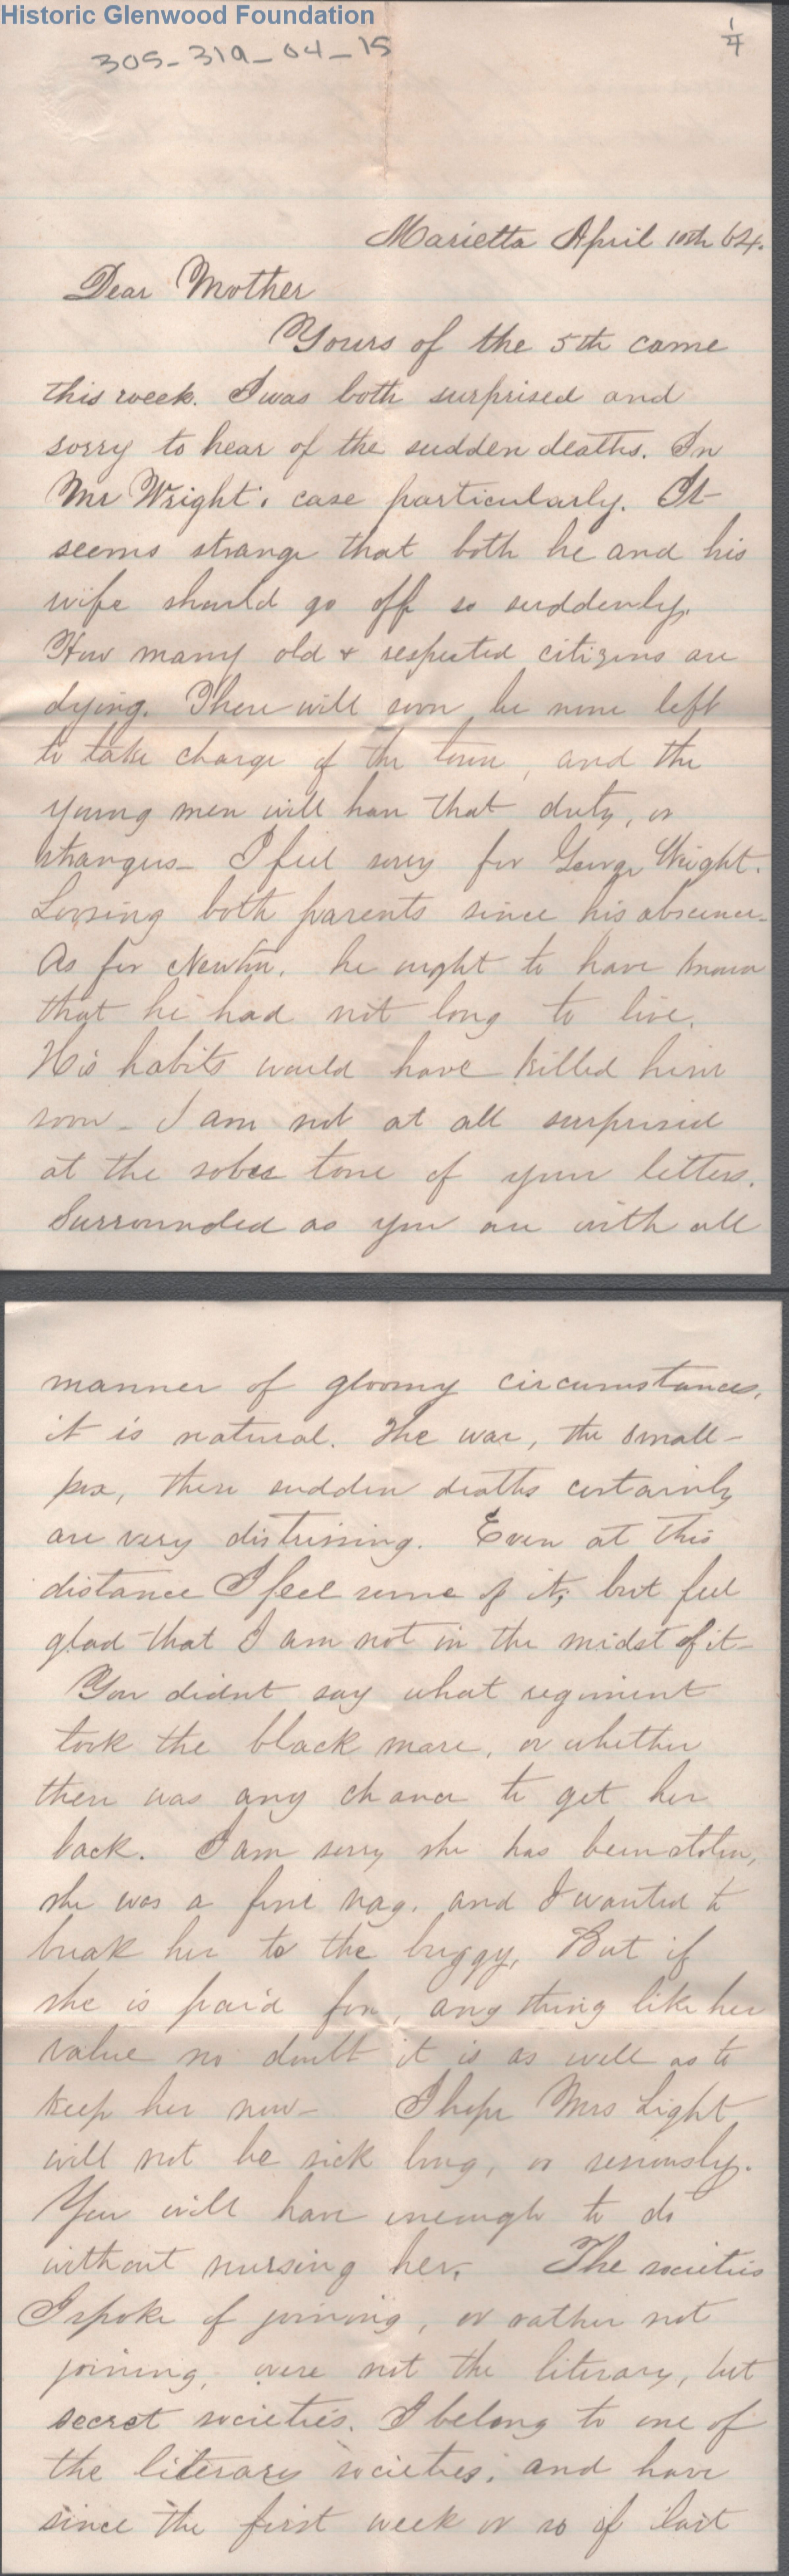 Historic Glenwood Foundation
305-319-04-15
1/4
Marietta April 10th 64.
Dear Mother
Yours of the 5th came
this week. I was both surprised and
sorry to hear of the sudden deaths. In
Mr Wright's case particularly. It
seems strange that both he and his
wife should go off so suddenly.
How many old & respected citizens are
dying. There will soon be none left
to take charge of the town, and the
young men will have that duty, or
strangers - I feel sorry for George Wright.
Loosing both parents since his absence.
As for Newton. he ought to have known
that he had not long to live.
His habits would have killed him
soon - I am not at all surprised
at the sober tone of your letters.
Surrounded as you are with all
manner of gloomy circumstances,
it is natural. The war, the small-
pox, these sudden deaths certainly
are very distressing. Even at this
distance I feel some of it; but feel
glad that I am not in the midst of it -
You didnt say what regiment
took the black mare, or whether
there was any chance to get her
back. I am sorry she has been stolen,
she was a fine nag. and I wanted to
break her to the buggy, But if
she is paid for, any thing like her
value no doubt it is as well as to
keep her now - I hope Mrs Light
will not be sick long, or seriously.
You will have enough to do
without nursing her. The societies
I spoke of joining, or rather not
joining, were not the literary, but
secret societies. I belong to one of
the literary societies, and have
since the first week or so of last